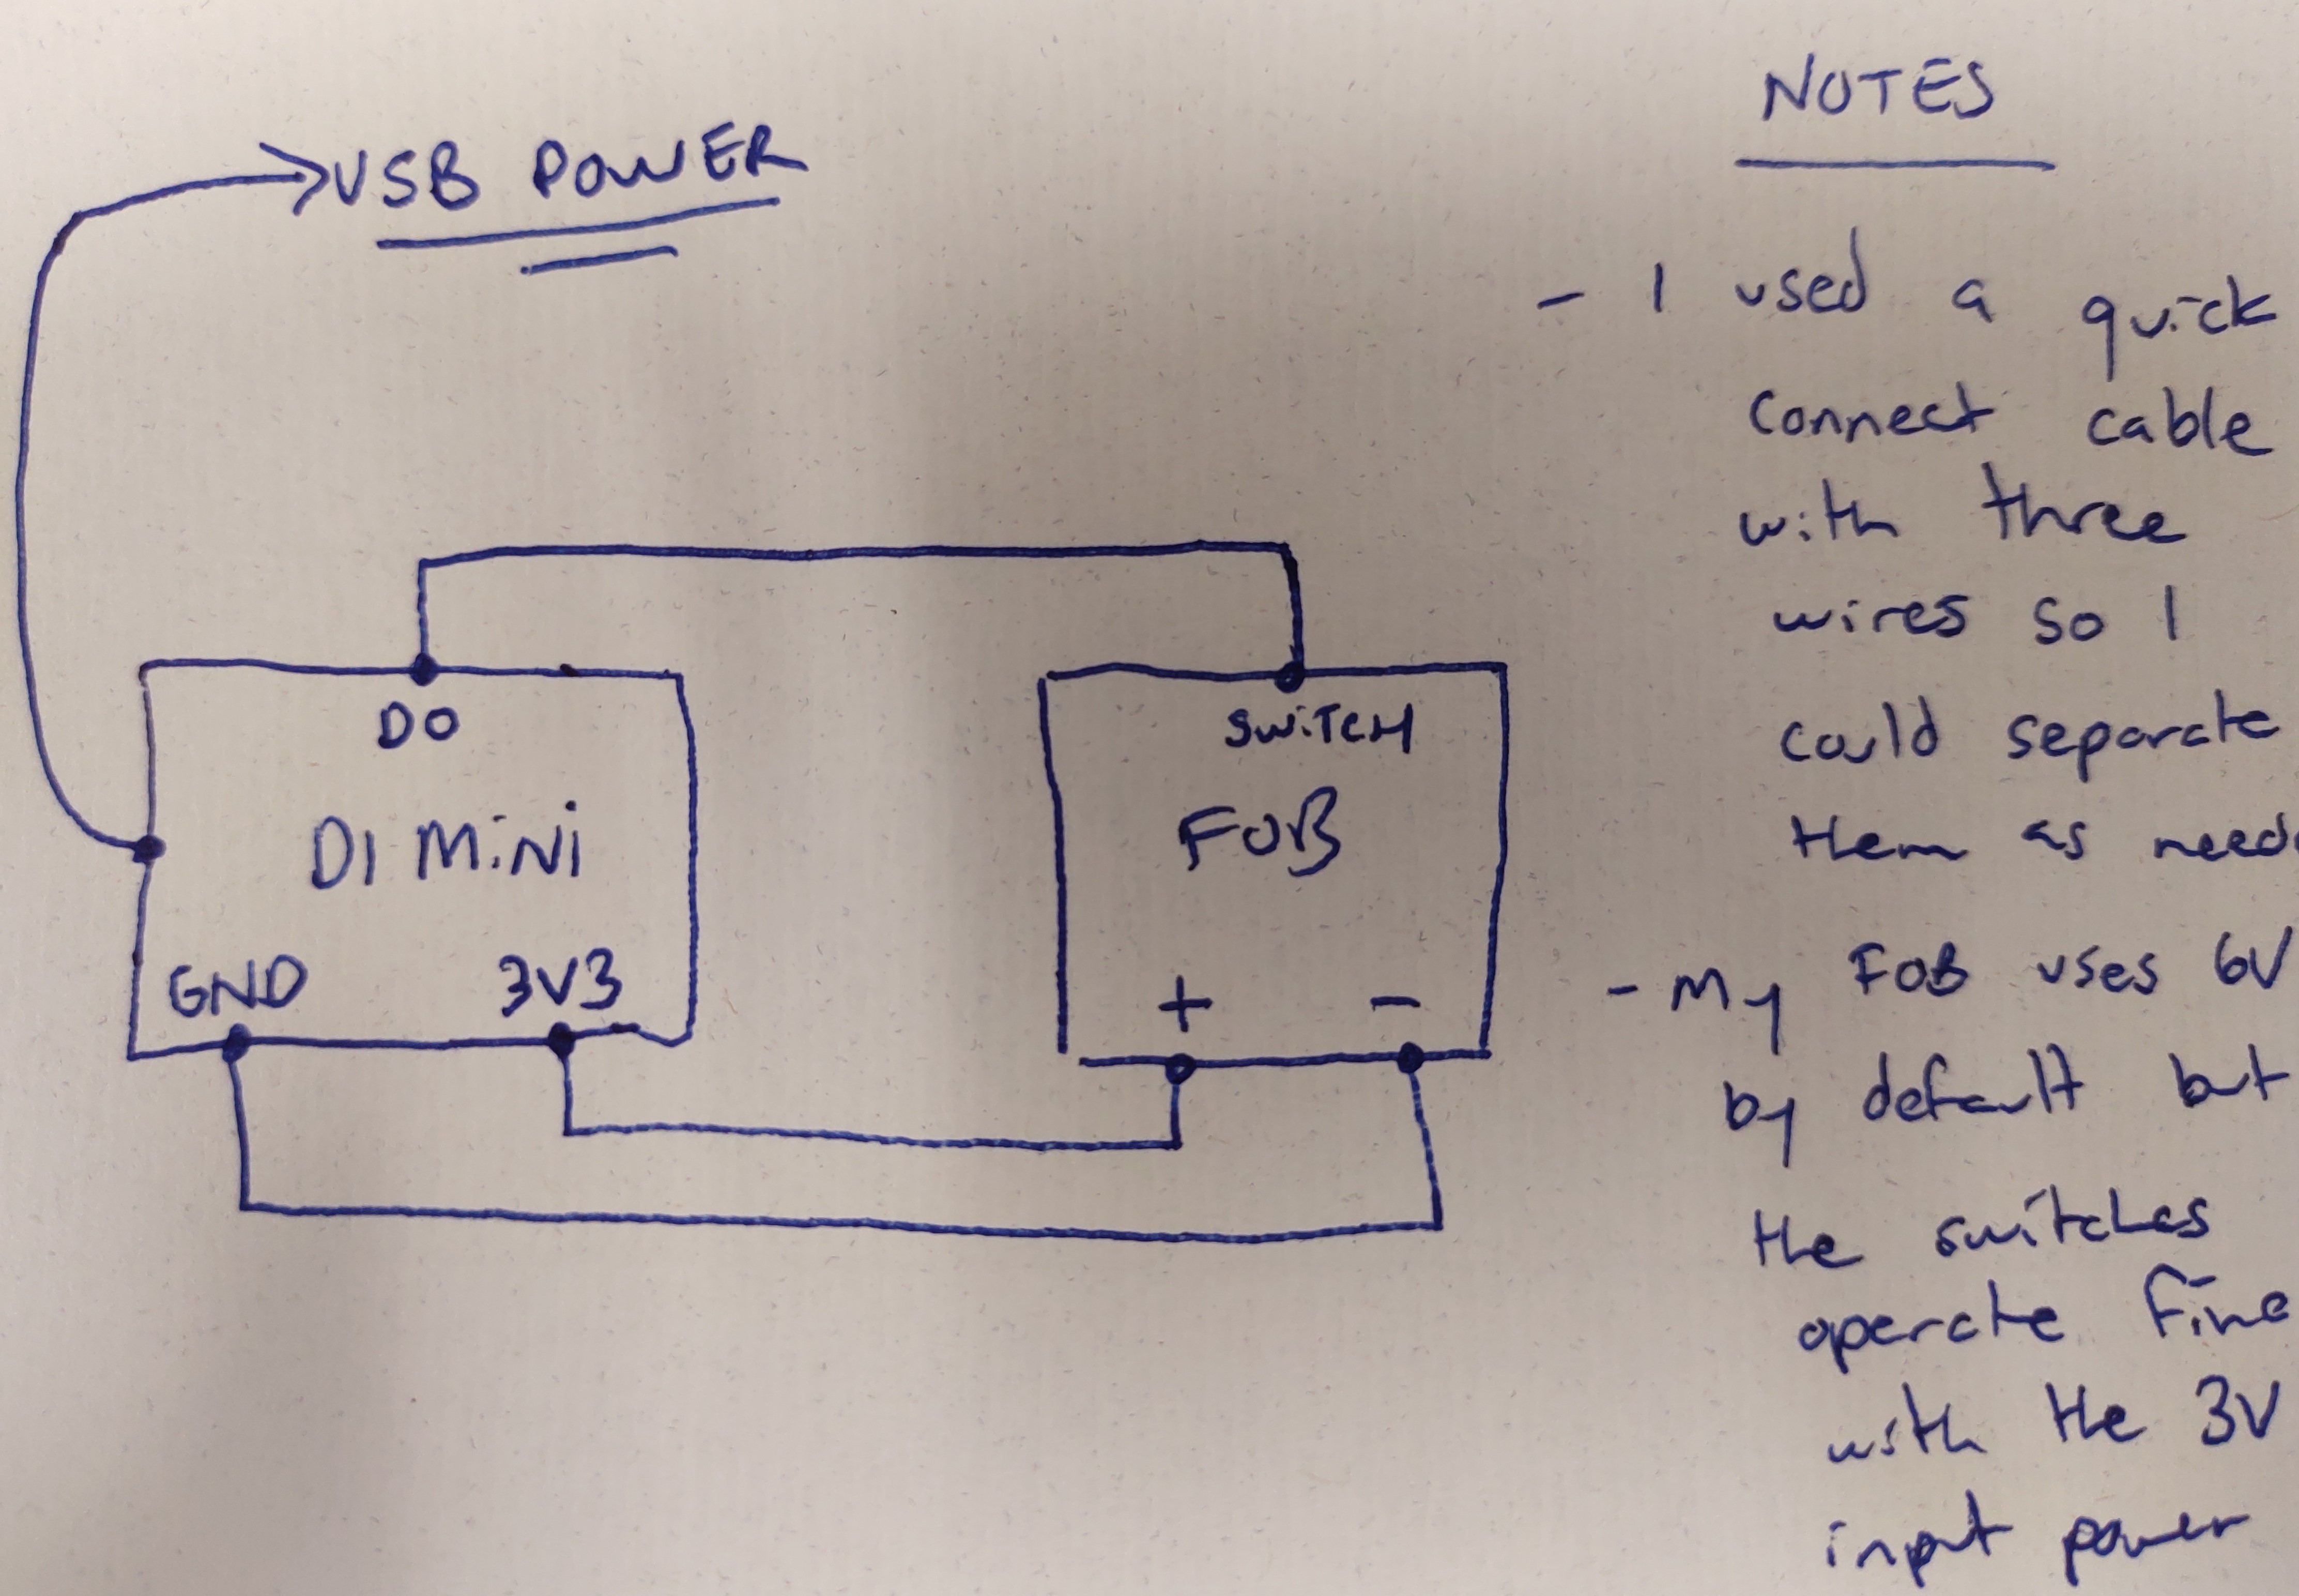 USB POWER
D0
D1 MiNi
GND 3V3
SWiTCH
FOB
+ -
NOTES
- I used a quick
connect cable
with three
wires so I
could separate
them as neede
- My FOB uses 6V
by default but
the switches
operate fine
with the 3V
input power